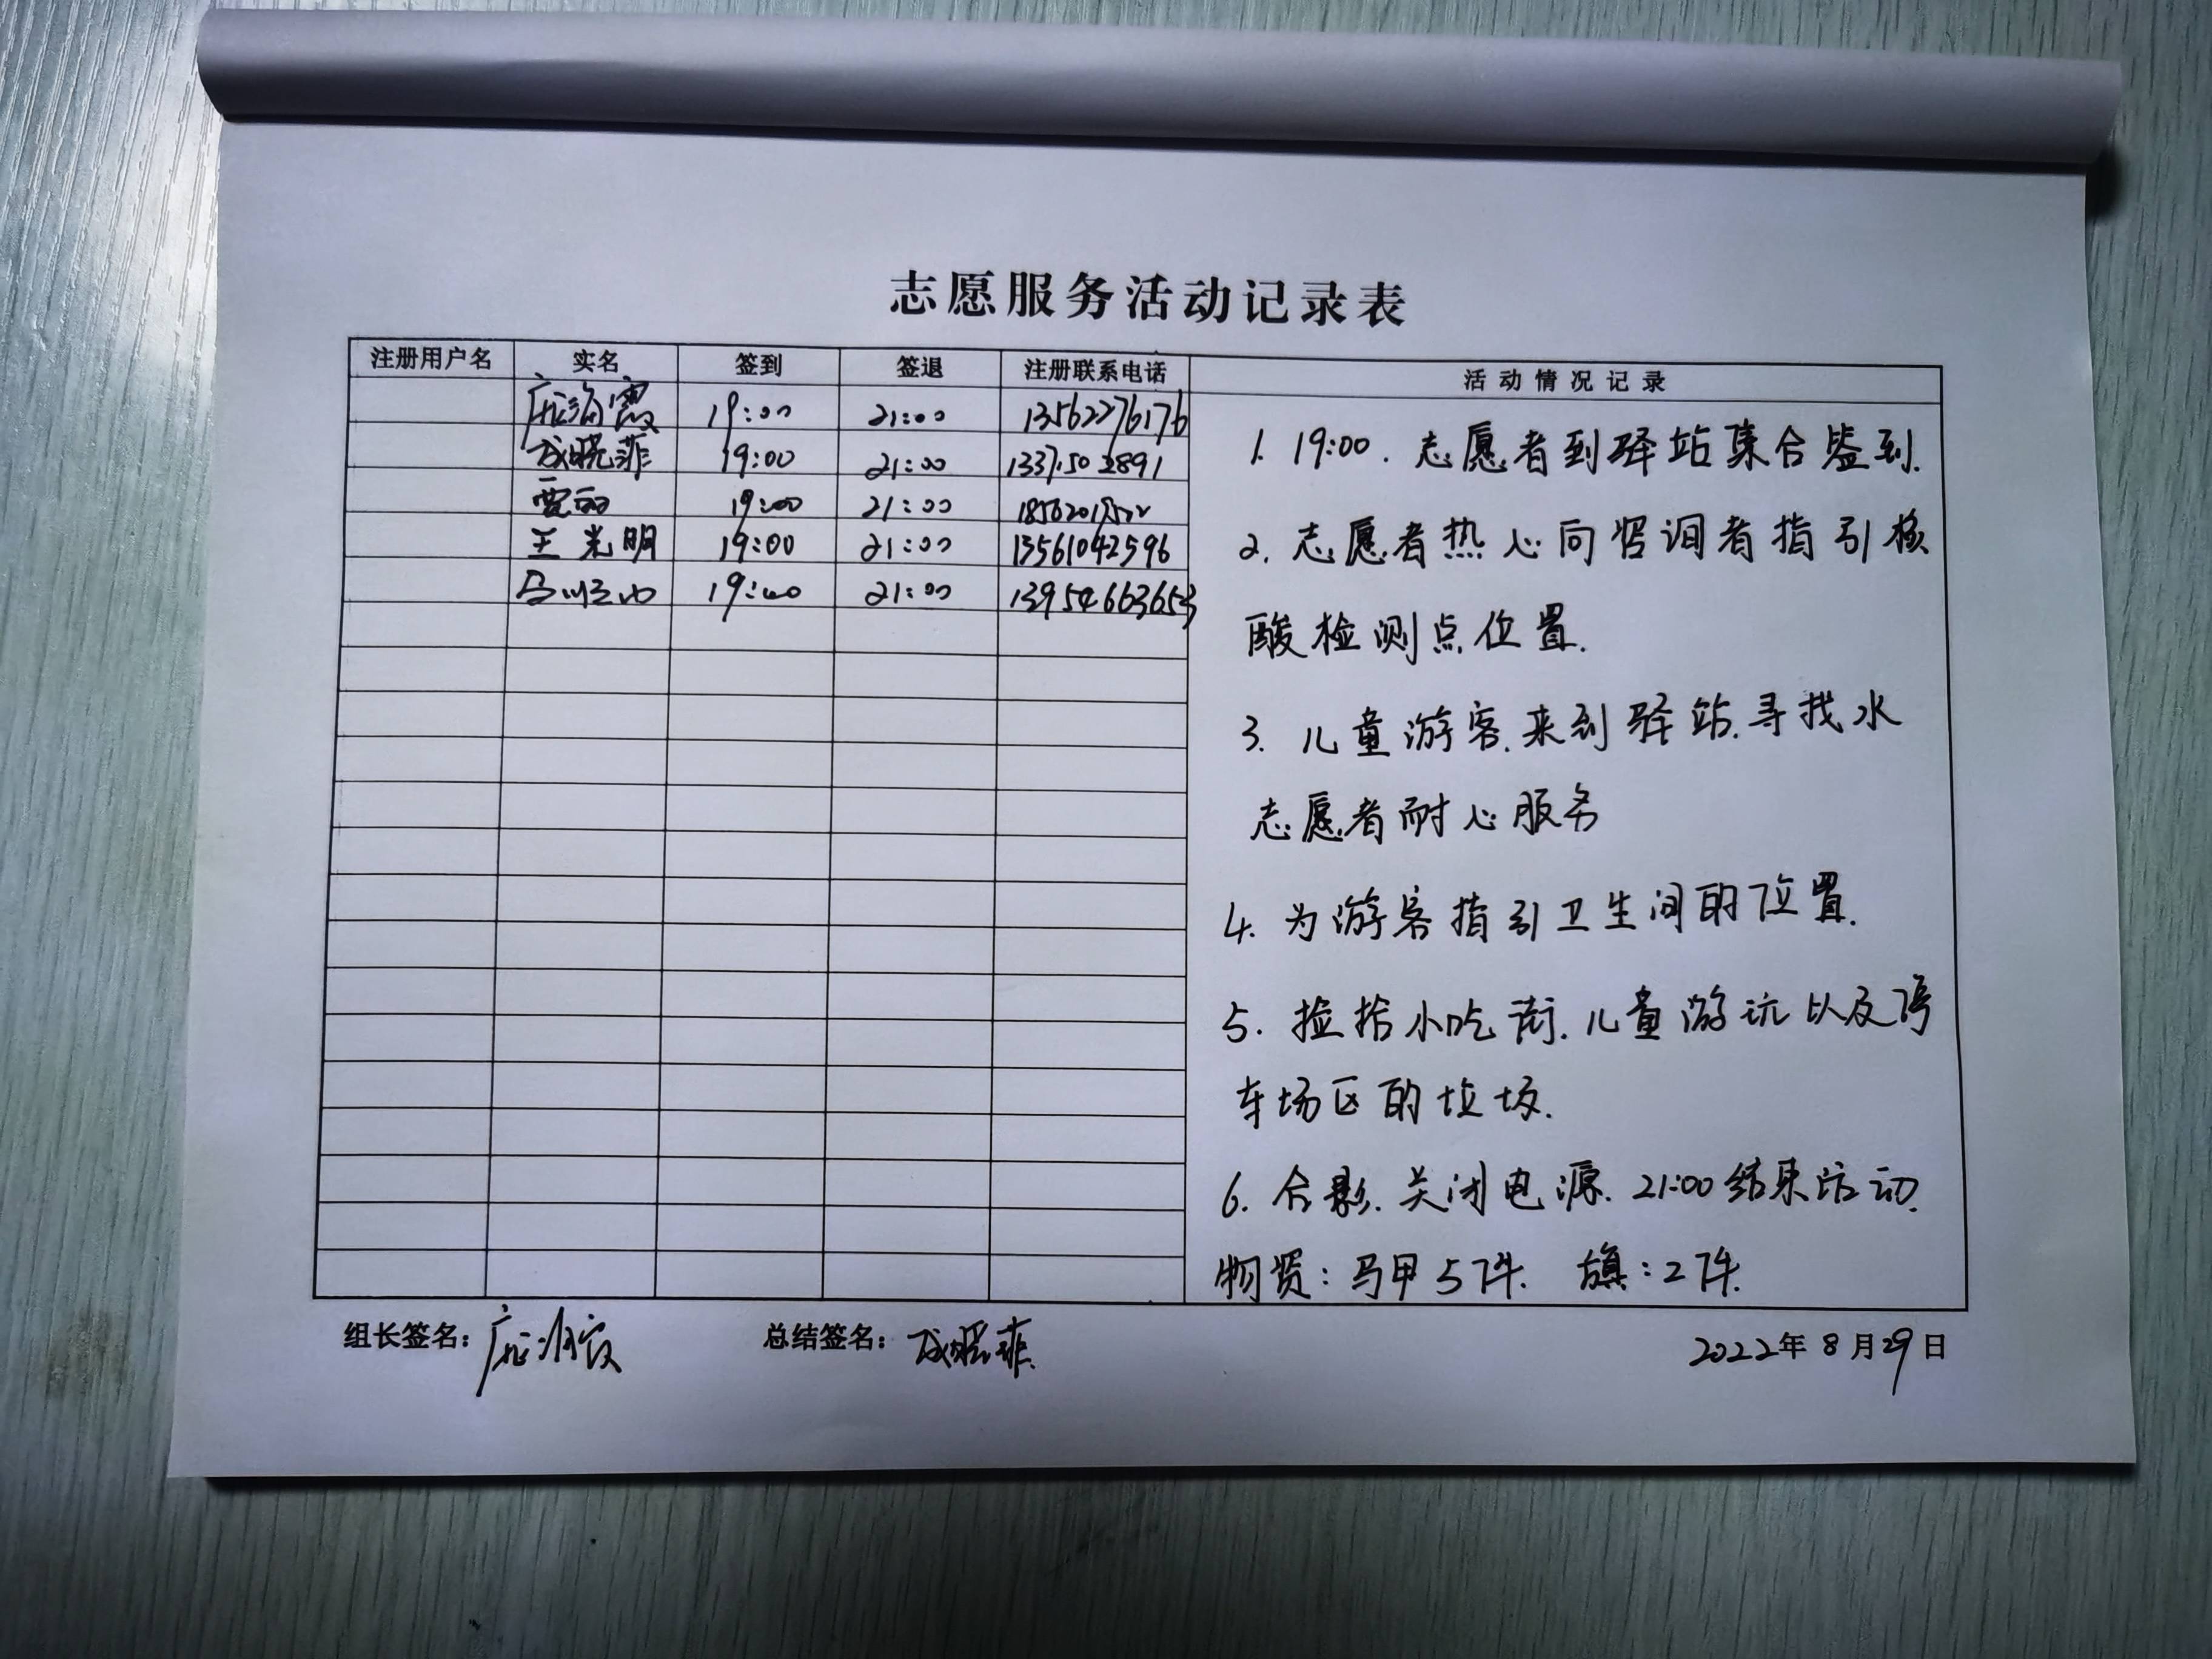 志愿服务活动记录表
注册用户名 实名 签到 签退 注册联系电话 活动情况记录
19:00 21:00 13562276176
成晓菲 19:00 21:00
19:00 21:00
王光明 19:00 21:00 13561042596
19:00 21:00 13954663653
1. 19:00. 志愿者到驿站集合签到.
2. 志愿者热心向咨询者指引核
酸检测点位置.
3. 儿童游客.来到驿站.寻找水
志愿者耐心服务
4. 为游客指引卫生间的位置.
5. 捡拾小吃街.儿童游玩以及停
车场区的垃圾.
6. 合影.关闭电源. 21:00结束活动.
物资:马甲5件. 旗:2件.
组长签名: 总结签名: 成晓菲 2022年8月29日